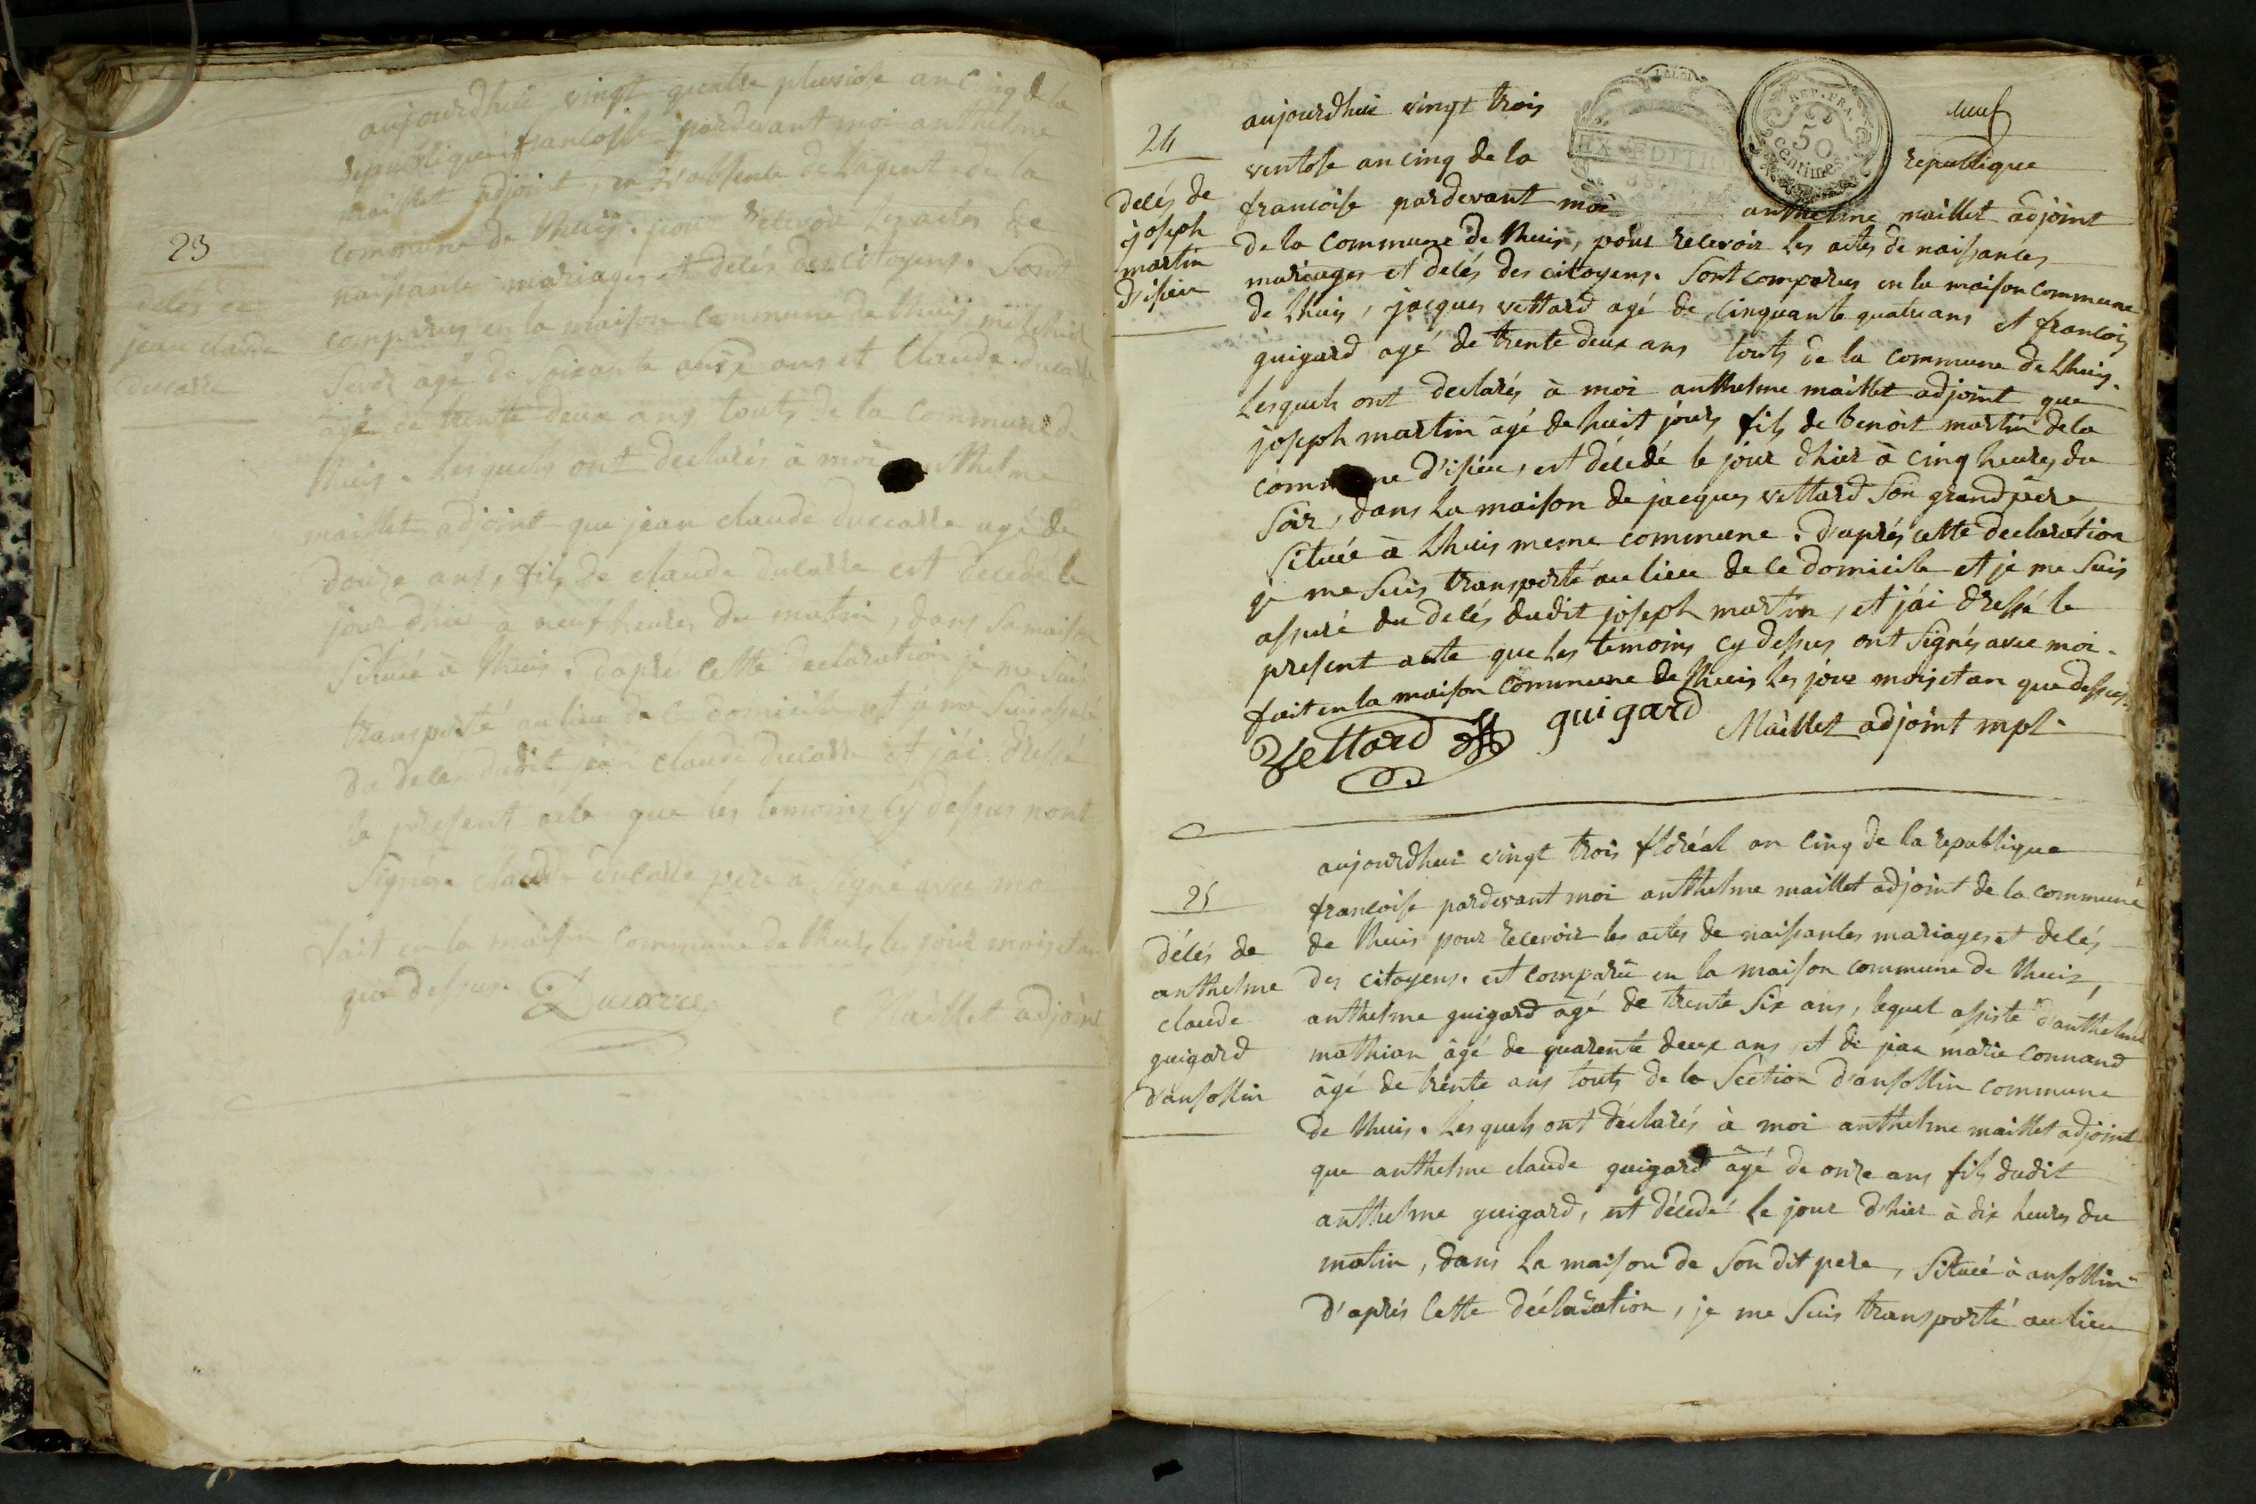 23
décés de
jean claude
ducarre
aujourdhui vingt quatre pluviose an cinq de la
republique francoise pardevant moi anthelme
maillet adjoint, en l'absence de l'agent de la
commune de Lhuis. pour recevoir les actes de
naissance mariages et décés des citoyens. Sont
comparus en la maison commune de Lhuis
agé de soixante ans et Claude ducarre
agé de trente deux ans touts de la commune de
Lhuis. Lesquels ont declarés à moi anthelme
maillet adjoint que jean claude duccarre agé de
douze ans, fils de claude ducarre est decedé le
jour dhier à neuf heures du matin, dans sa maison
située à Lhuis. daprés cette declaration je me suis
transporté au lieu de ce domicile et je me suis assuré
du déces dudit jean claude ducarre et j'ai dressé
le present acte que les temoins cy dessus n'ont
signés. claude ducarre pere a signé avec moi
fait en la maison commune de Lhuis les jour mois et an
que dessus. Ducarre Maillet adjoint
neuf
REP. FRA.
50
centimes
24
decés de
joseph
martin
d'isieu
aujourdhui vingt trois
ventose an cinq de la republique
francoise pardevant moi anthelme maillet adjoint
de la commune de Lhuis, pour recevoir les actes de naissances
mariages et decés des citoyens. Sont comparus en la maison commune
de Lhuis, jacques vettard agé de cinquante quatre ans et francois
guigard agé de trente deux ans touts de la commune de Lhuis.
Lesquels ont declarés à moi anthelme maillet adjoint que
joseph martin âgé de huit jours fils de Benoit martin de la
commune d'isieu, est décedé le jour dhier à cinq heures du
soir, dans la maison de jacques vettard son grand pere
située à Lhuis meme commune. d'aprés cette declaration
je me suis transporté au lieu de ce domicile et je me suis
assuré du decés dudit joseph martin, et j'ai dressé le
present acte que les temoins cy dessus ont signés avec moi.
fait en la maison commune de Lhuis les jour mois et an que dessus.
Vettard guigard Maillet adjoint mpl.
25
décés de
anthelme
claude
guigard
d'ansollin
aujourdhui vingt trois floréal an cinq de la republique
francoise pardevant moi anthelme maillet adjoint de la commune
de Lhuis pour recevoir les actes de naissances mariages et decés
des citoyens. est comparu en la maison commune de Lhuis,
anthelme guigard agé de trente six ans, lequel assisté d'anthelme
mathian âgé de quarente deux ans, et de jean marie connand
âgé de trente ans touts de la section d'ansollin commune
de Lhuis. Lesquels ont déclarés à moi anthelme maillet adjoint
que anthelme claude guigard âgé de onze ans fils dudit
anthelme guigard, est décedé le jour d'hier à dix heures du
matin, dans la maison de son dit pere, située à ansollin
d'aprés cette déclaration, je me suis transporté au lieu